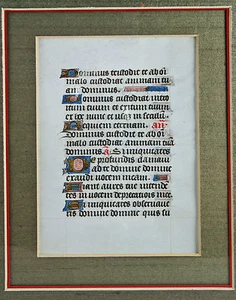 Dominus custodit te ab om
malo custodiat animam tu
am dominus.
Dominus custodiat intro
itum tuum et exitum tuum
ex hoc nunc et usque in seculum
Requiem eternam. an
Dominus custodit te ab om
malo custodiat animam tuā
dominus. a. Si iniquitates
De profundis clamavi
ad te domine domine
exaudi vocem meam.
Fiant aures tue intende
tes in vocem deprecationis mee.
Si iniquitates observave
ris domine domine quis su